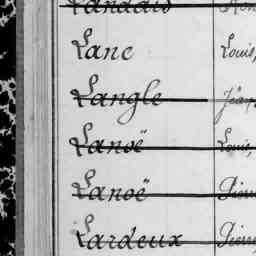 Landais
Lane Louis,
Langle Jean
Lanoë Louis,
Lanoë Pierre
Lardeux Pierre